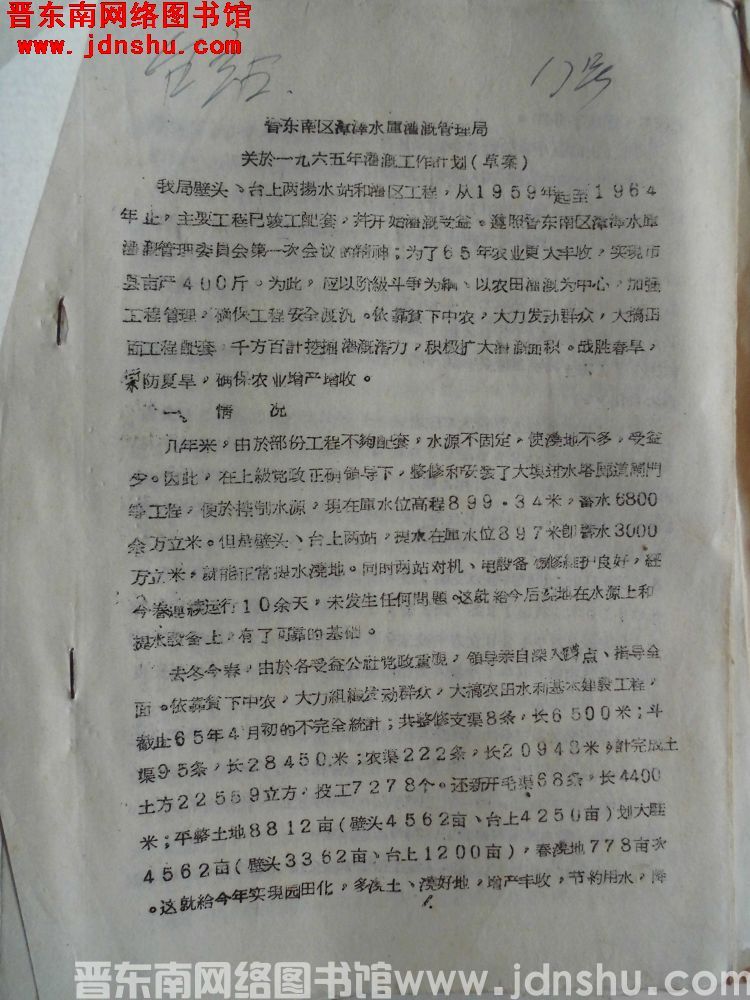 晋东南网络图书馆
www.jdnshu.com
17号
晋东南区漳泽水库灌溉管理局
关於一九六五年灌溉工作计划(草案)
我局壁头、台上两揚水站和灌区工程，从1959年起至1964
年止，主要工程已竣工配套，并开始灌溉受益。遵照晋东南区漳泽水庫
灌溉管理委員会第一次会议的精神；为了65年农业更大丰收，实现市
县亩产400斤。为此，应以阶級斗爭为綱、以农田灌溉为中心，加強
工程管理，确保工程安全渡汛。依靠貧下中农，大力发动群众，大搞田
面工程配套，千方百計挖掘灌溉潜力，积极扩大灌溉面积。战胜春旱，
防夏旱，确保农业增产增收。
一、情况
几年来，由於部份工程不夠配套，水源不固定，使澆地不多，受益
少。因此，在上級党政正确領导下，整修和安装了大垻进水塔廊道閘門
等工程，便於控制水源，现在庫水位高程899·34米，蓄水6800
余万立米。但是壁头、台上两站，提水在庫水位897米即蓄水3000
万立米，就能正常提水澆地。同时两站对机、电設备维修維护良好，經
今春連续运行10余天，未发生任何問題。这就給今后澆地在水源上和
提水設备上，有了可靠的基础。
去冬今春，由於各受益公社党政重視，領导亲自深入蹲点、指导全
面。依靠貧下中农，大力組織发动群众，大搞农田水利基本建設工程，
截止65年4月初的不完全統計；共整修支渠8条，长6500米；斗
渠95条，长28450米；农渠222条，长20948米，計完成土
土方22559立方，投工7278个。还新开毛渠68条，长4400
米；平整土地8812亩(壁头4562亩、台上4250亩)划大畦
4562亩(壁头3362亩、台上1200亩)，春澆地778亩次
。这就給今年实现园田化，多澆土、澆好地，增产丰收，节約用水，降
1.
晋东南网络图书馆www.jdnshu.com